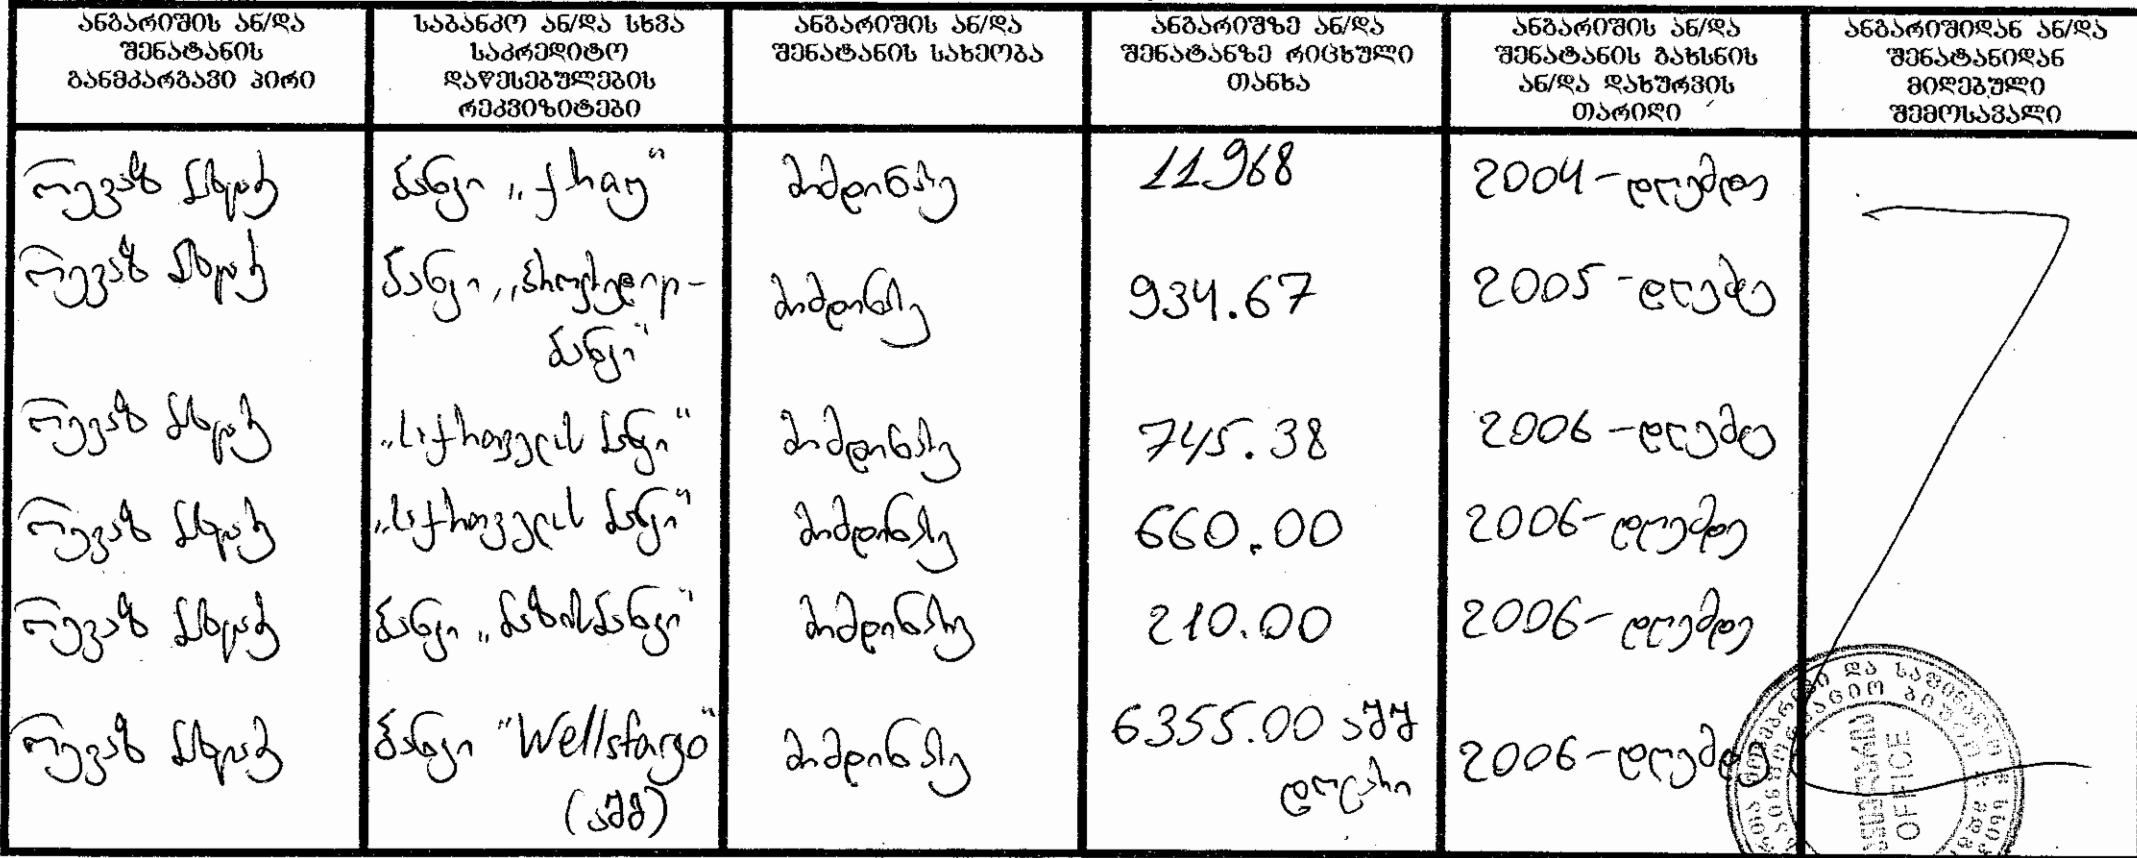 ანგარიშის ან/და შენატანის განმკარგავი პირი
საბანკო ან/და სხვა საკრედიტო დაწესებულების რეკვიზიტები
ანგარიშის ან/და შენატანის სახეობა
ანგარიშზე ან/და შენატანზე რიცხული თანხა
ანგარიშის ან/და შენატანის გახსნის ან/და დახურვის თარიღი
ანგარიშიდან ან/და შენატანიდან მიღებული შემოსავალი
რევაზ მიმდინარე 11968 2004-დღემდე
რევაზ ბანკი „პროკრედიტ-
ბანკი“ მიმდინარე 934.67 2005-დღემდე
რევაზ „საქართველოს ბანკი“ მიმდინარე 745.38 2006-დღემდე
რევაზ „საქართველოს ბანკი“ მიმდინარე 660.00 2006-დღემდე
რევაზ ბანკი „ბაზისბანკი“ მიმდინარე 210.00 2006-დღემდე
რევაზ ბანკი "Wellsfargo" მიმდინარე 6355.00 აშშ 2006-დღემდე
(აშშ) დოლარი
OFFICE